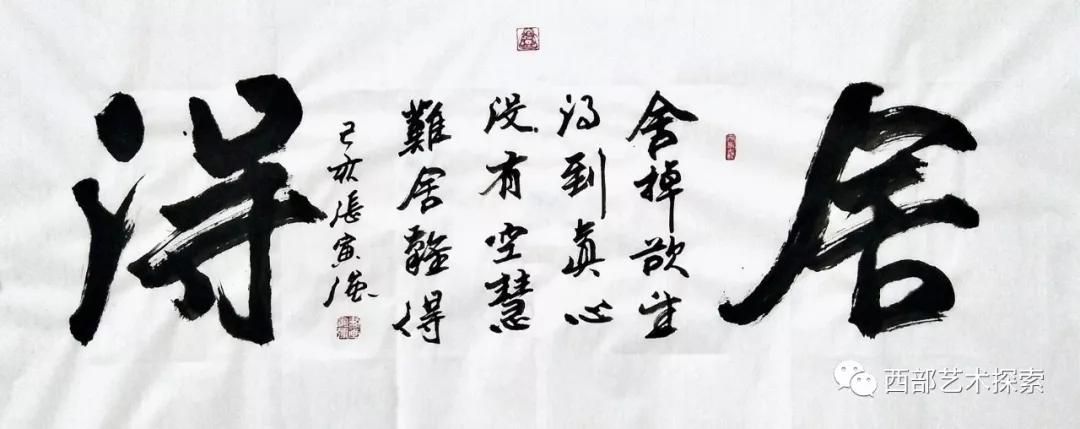 舍得
舍掉欲望
得到真心
没有空慧
難舍難得
己亥張寅強
西部艺术探索